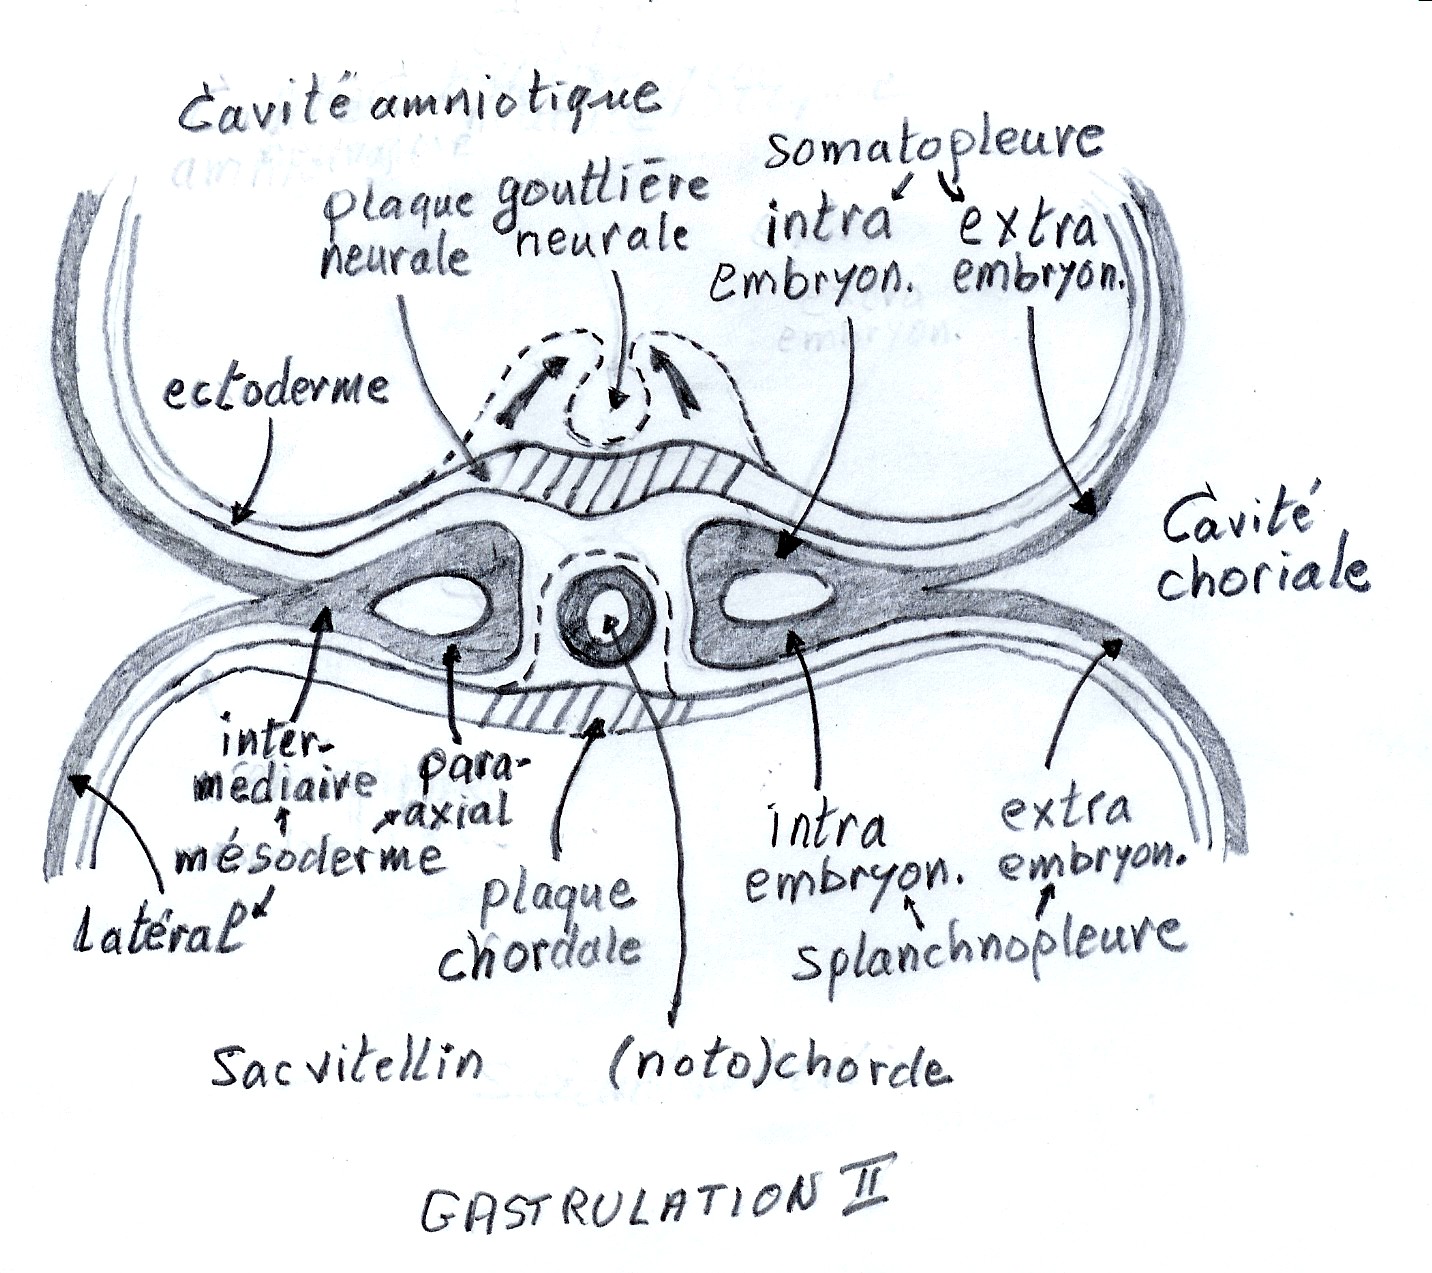 Cavité amniotique
somatopleure
plaque
neurale
gouttière
neurale
intra
embryon.
extra
embryon.
ectoderme
Cavité
choriale
inter-
médiaire
para-
axial
mésoderme
latéral
plaque
chordale
intra
embryon.
extra
embryon.
splanchnopleure
Sac vitellin
(noto)chorde
GASTRULATION II